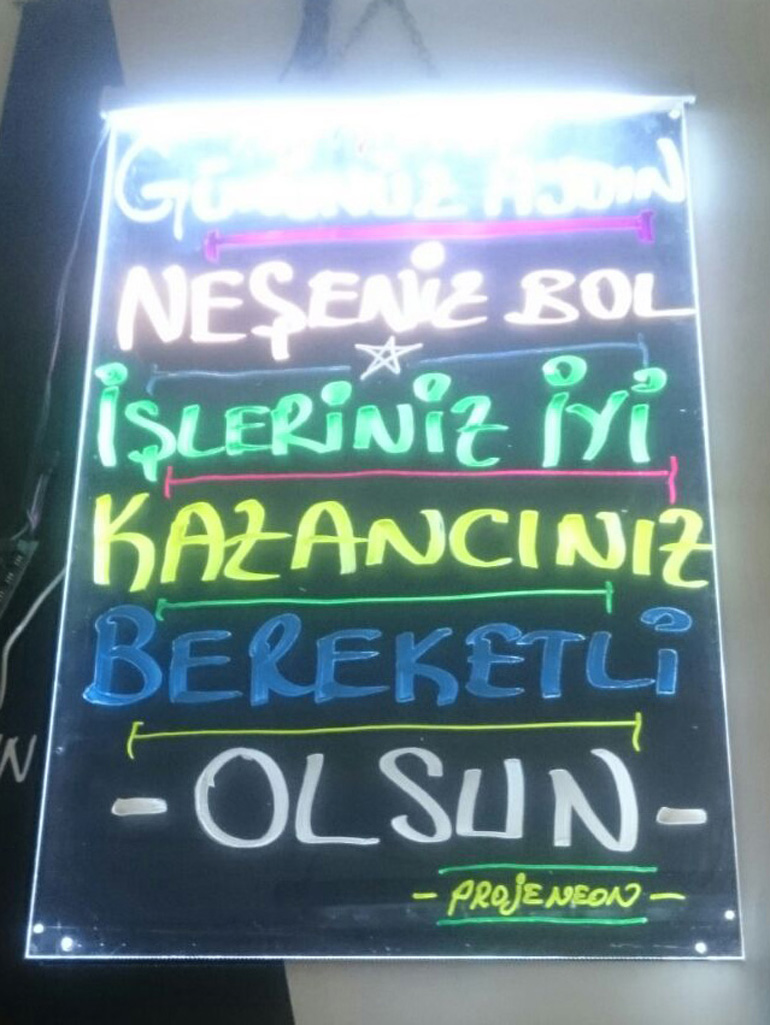 GÜNÜNÜZ AYDIN
NEŞENİZ BOL
İŞLERİNİZ İYİ
KAZANCINIZ
BEREKETLİ
-OLSUN-
- PROJENEON -